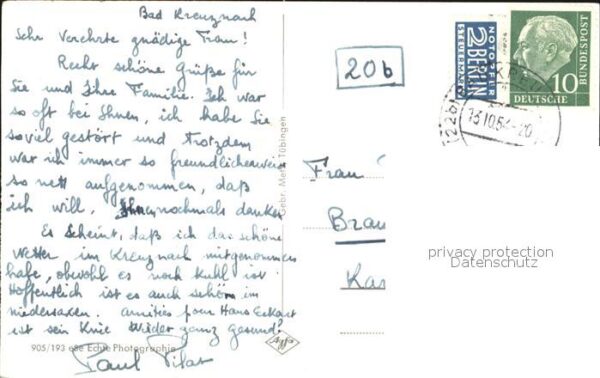 Bad Kreuznach
Sehr Verehrte gnädige Frau!
Recht schöne Grüße für
Sie und Ihre Familie. Ich war
so oft bei Ihnen, ich habe Sie
soviel gestört und trotzdem
war ich immer so freundlicherweise
so nett aufgenommen, daß
ich will, Ihnen nochmals danken
Es Scheint, daß ich das schöne
Wetter im Kreuznach mitgenommen
habe, obwohl es noch Kuhl ist
Hoffentlich ist es auch schön im
niedersaxen. amitiés pour Hans Eckart
ist sein Knie Wieder ganz gesund?
Paul
905/193 Echte Photographie
Gebr. Metz, Tübingen
Agfa
20b
NOTOPFER
2 BERLIN
STEUERMARKE
DEUTSCHE
BUNDESPOST
10
13.10.54-20
(22b)
Frau
Brau
Kas
privacy protection
Datenschutz